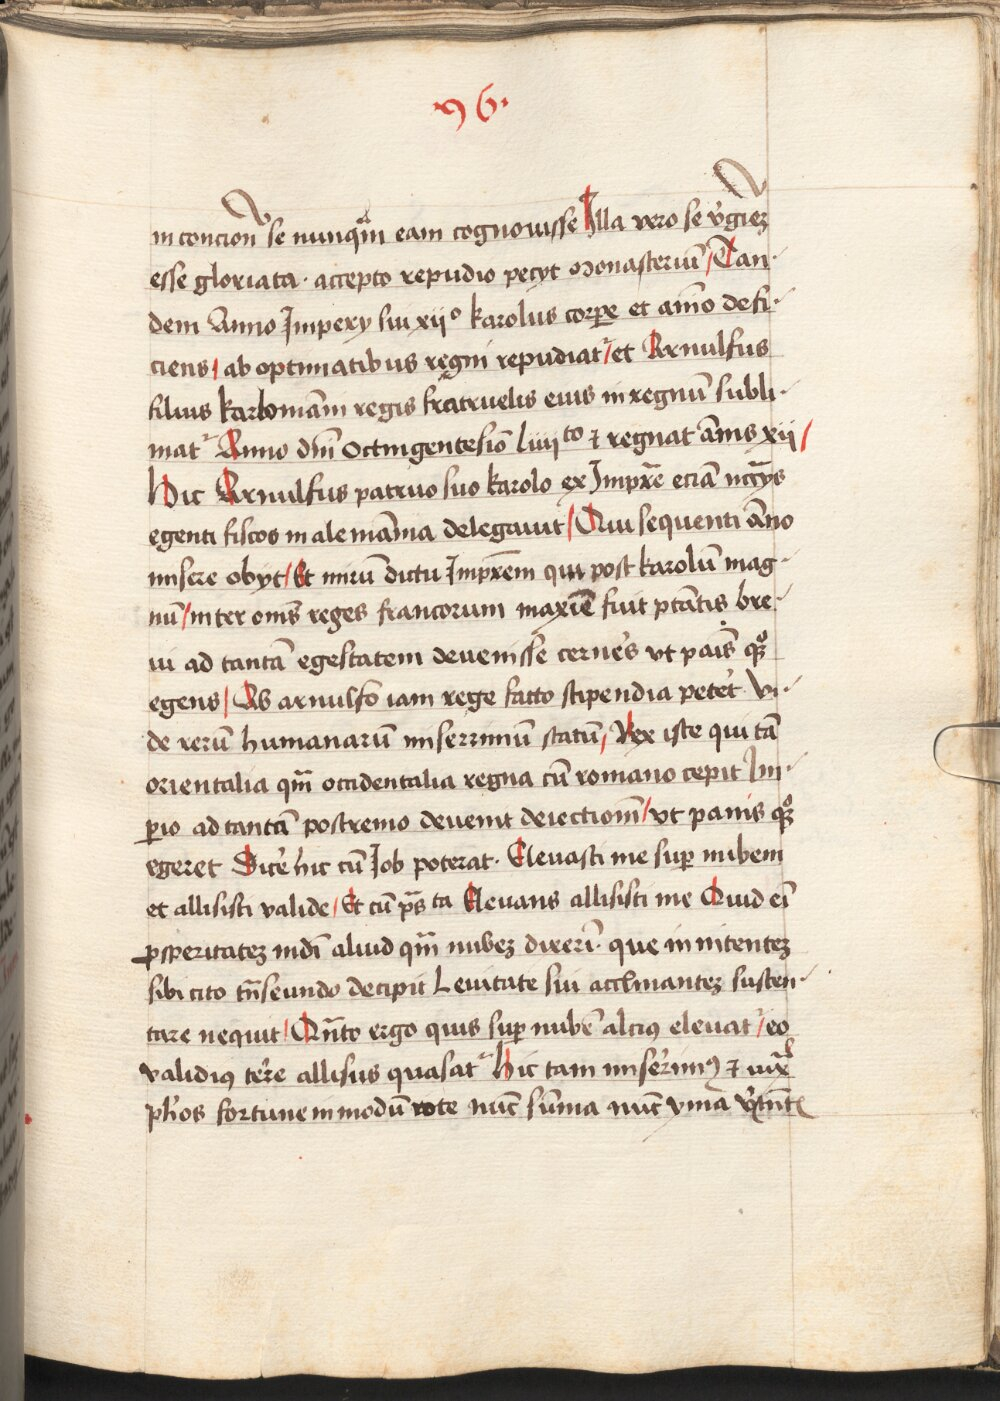 ·96·
in concion̄ se nunqᷓm eam cognouisse Illa vero se v̾gīez
esse gloriata · accepto repudio pecyt monasteriū / Tan·
dem Anno Imperÿ sui xijº karolus corꝑe et aīmo defi·
ciens / ab optimatibus regni repudiatᷣ / et Arnulfus
filius karlomāni regis fratruelis euis in regnū subli·
matᷣ Anno dnī Octingentesiō liiijto ⁊ regnat ānis xij /
Hic Arnulfus patruo suo karolo ex Impr̄e eciā nc̄cÿs
egenti fiscos in alemānia delegauit / Qui sequenti āno
misere obyt / Et mirū dictu Impr̄em qui post karolū mag·
nū / inter om̄s reges francorum maxīē fuit ptātis bre·
ui ad tantā egestatem deuenisse cerne͛s vt pais̄ qꝫº
egens / Ab arnulfo iam rege facto stipendia pete͛t Vi·
de rerū humanarū miserrimū statū / Rex iste qui tā
orientalia qm̄ occidentalia regna cū romano cepit Im·
ꝑio ad tantā postremo deuenit deiectiom̄ / vt panis qꝫº
egeret Dice͛ hic cū Job poterat · Eleuasti me suꝑ nubem
et allisisti valide / Et cū ps̄ta Eleuans allisisti me Quid eī
ꝓsperitatez mdī aliud qm̄ nubez dixerī · que innitentez
sibi cito tn̄seundo decipit Leuitate sui acclinantez susten·
tare nequit / Qn̄to ergo quis suꝑ nubē alciꝰ eleuatᷣ / eo
validiꝰ te͛re allisus quasatᷣ Hic tam mise͛rimꝰ ⁊ iux̄
ph̄os fortune in modū rote nūc sūma nūc yma v̾tūtᷣ